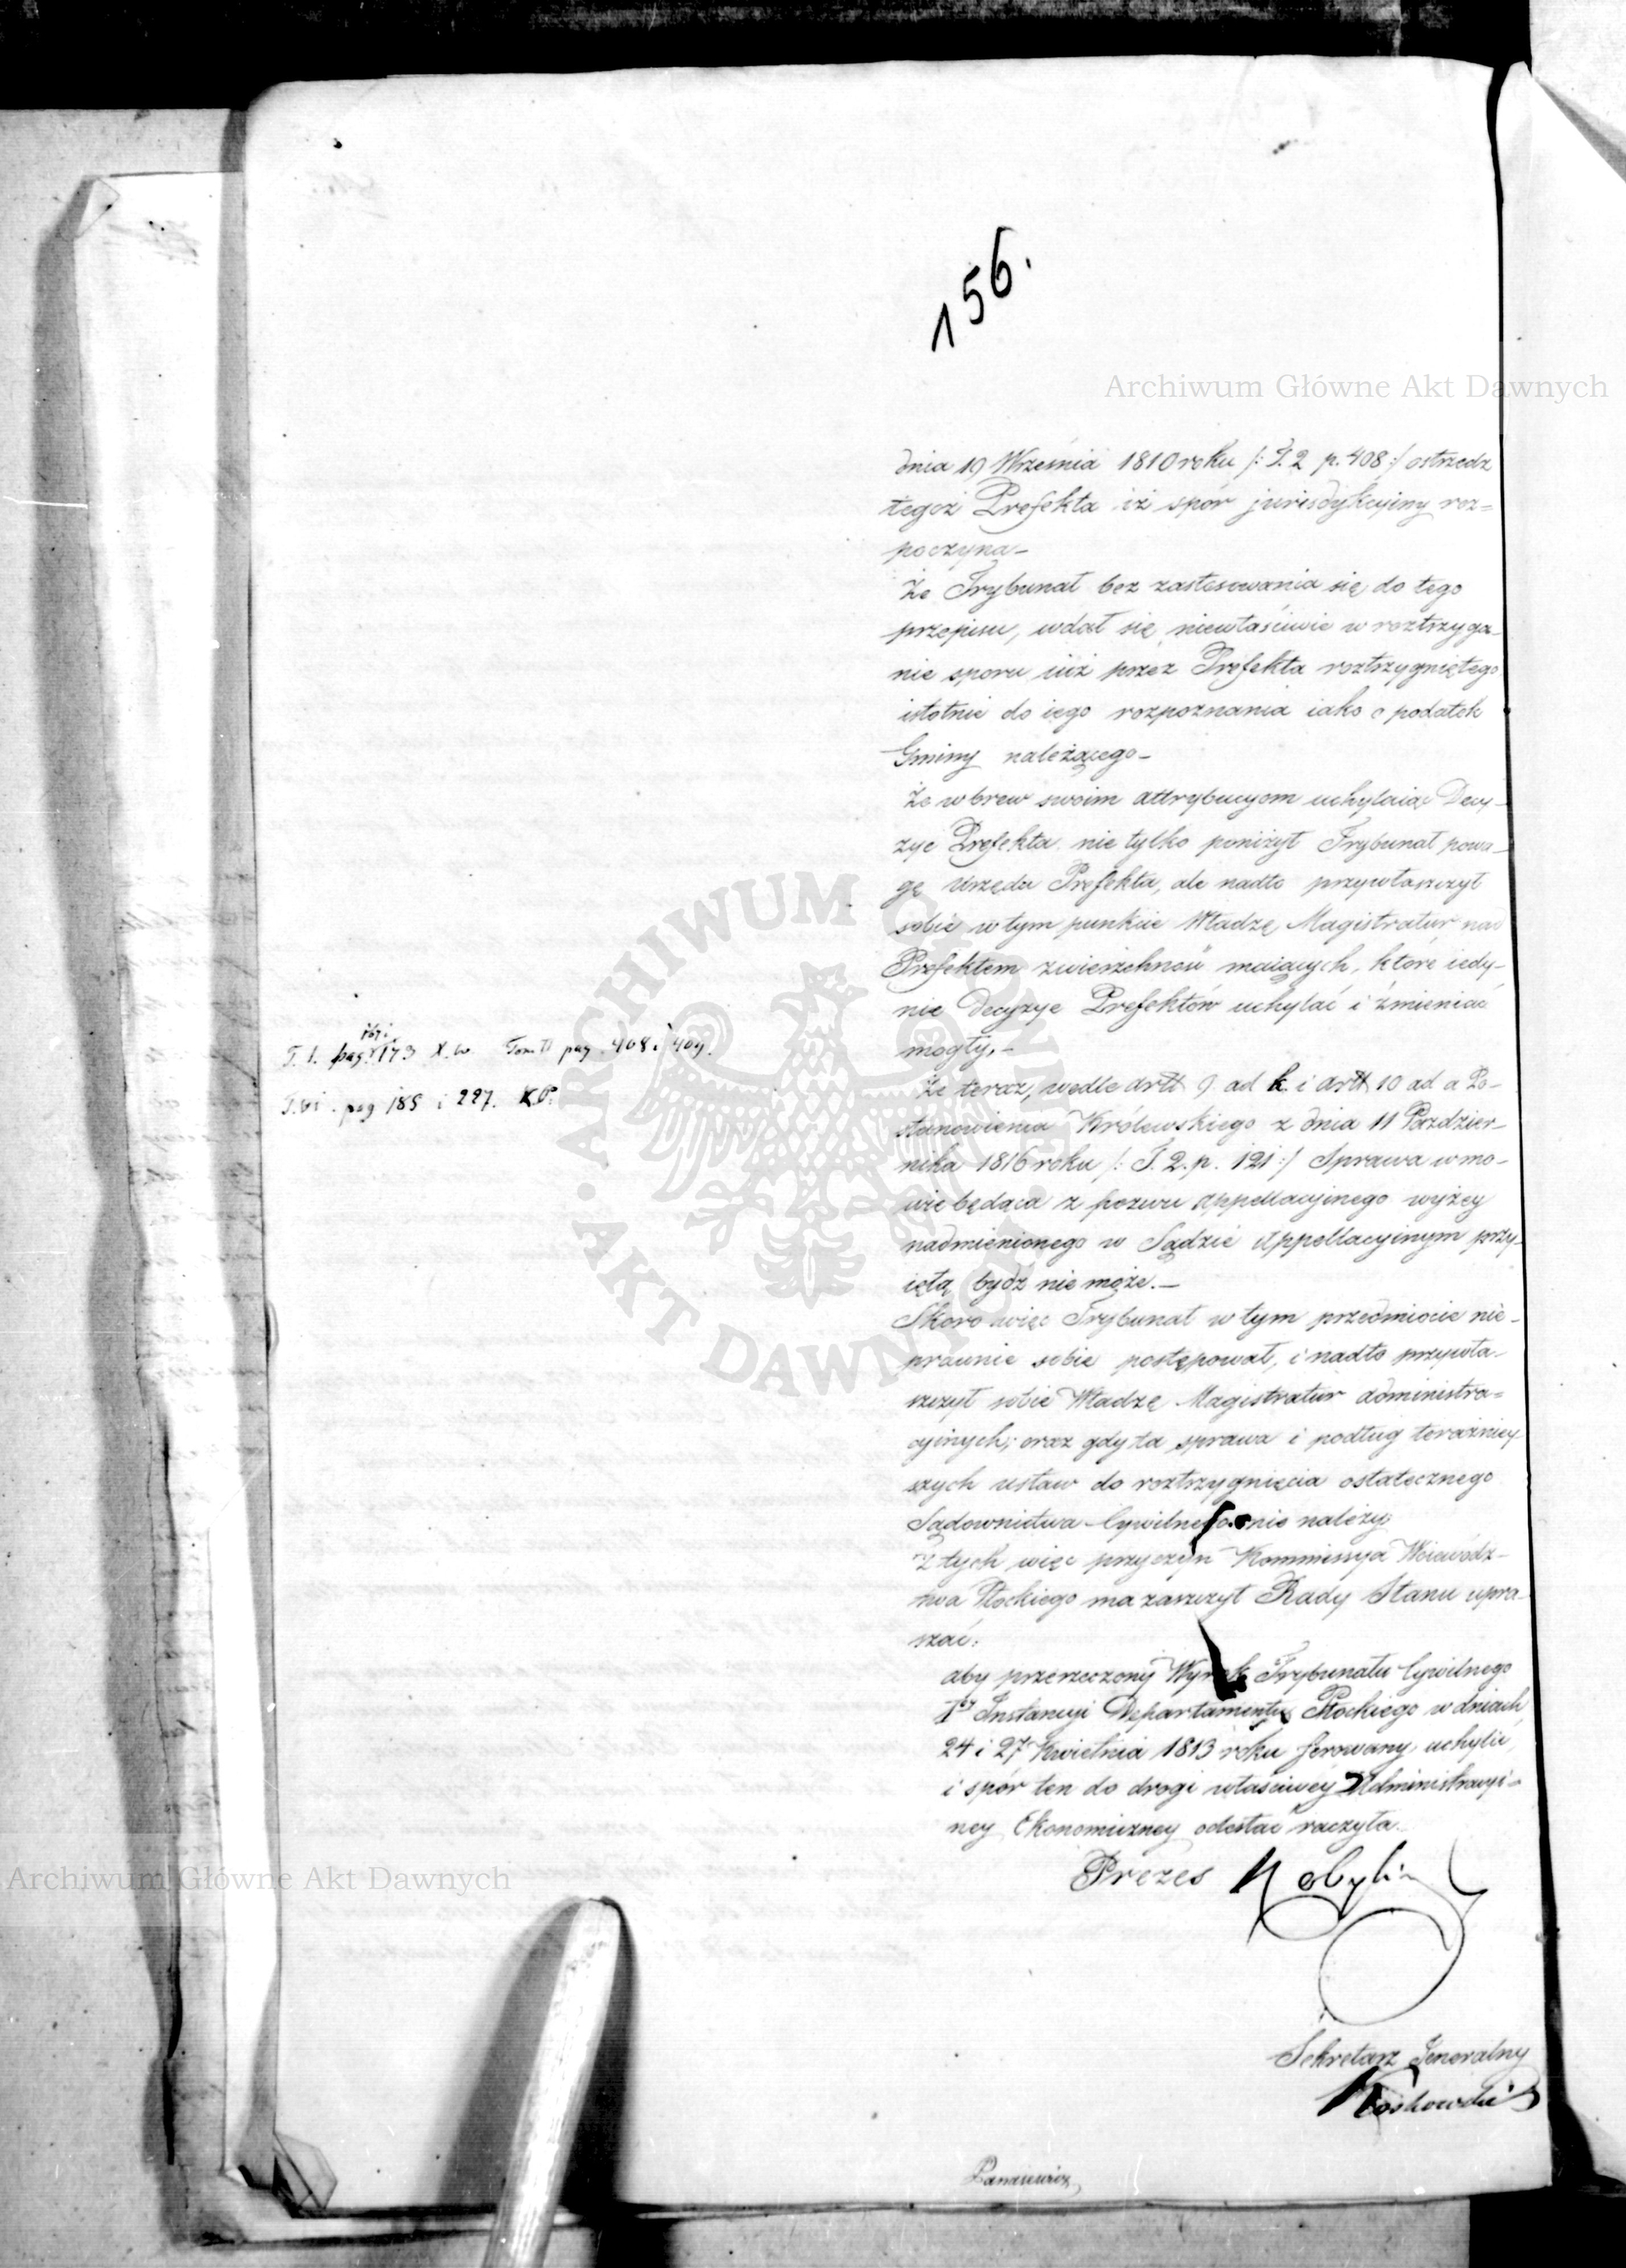 156.
Archiwum Główne Akt Dawnych
dnia 19 Września 1810 roku /: T. 2 p. 408 :/ ostrzedz
tegoż Prefekta iż spór jurisdykcyiny roz=
poczyna –
Że Trybunał bez zastosowania się do tego
przepisu, wdał się niewłaściwie w roztrzyga-
nie sporu iuż przez Prefekta roztrzygniętego
istotnie do iego rozpoznania iako o podatek
Gminy należącego –
Że wbrew swoim attrybucyom uchylaiąc Decy-
zye Prefekta nie tylko poniżył Trybunał powa-
gę Urzędu Prefekta, ale nadto przywłaszczył
sobie w tym punkcie Władzę Magistratur nad
Prefektem zwierzchność maiących, które iedy-
nie Decyzye Prefektów uchylać i zmieniać
mogły, –
T. I. pag. 173 X. w. Tom. II pag. 408 i 409.
T. VI. pag 185 i 227. K.P.
Że teraz, wedle artt 9. ad k. i artt 10 ad a Po-
stanowienia Królewskiego z dnia 11 Paździer-
nika 1816 roku /: T. 2. p. 121 :/ Sprawa w mo-
wie będąca z pozwu appellacyinego wyżey
nadmienionego w Sądzie Appellacyinym przy-
iętą bydź nie może. –
Skoro więc Trybunał w tym przedmiocie nie-
prawnie sobie postępował, i nadto przywła-
szczył sobie Władzę Magistratur administra=
cyinych; oraz gdy ta sprawa i podług teraźniey-
szych ustaw do roztrzygnięcia ostatecznego
Sądownictwa Cywilnego nie należy
z tych więc przyczyn Kommissya Woiewódz-
twa Płockiego ma zaszczyt Rady Stanu upra-
szać:
aby przerzeczony Wyrok Trybunału Cywilnego
Iey Instancyi Departamentu Płockiego w dniach
24 i 27 Kwietnia 1813 roku ferowany uchylić,
i spór ten do drogi właściwey Administracyi-
ney Ekonomiczney odesłać raczyła.
Prezes Kobyliń
Archiwum Główne Akt Dawnych
Sekretarz Jeneralny
ARCHIWUM GŁÓWNE AKT DAWNYCH